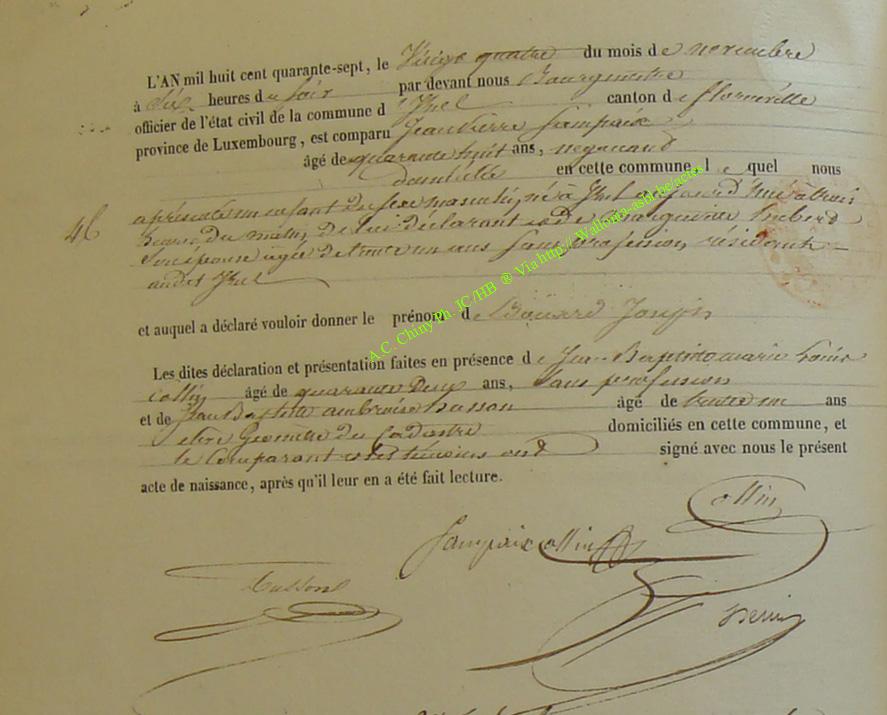 L'AN mil huit cent quarante-sept, le Vingt quatre du mois de novembre
à Six heures du Soir par devant nous Bourgmestre
officier de l'état civil de la commune d'Izel canton de florenville
province de Luxembourg, est comparu Jean Pierre Sampaix
âgé de quarante huit ans, negociant
domicilié en cette commune, le quel nous
46
a présenté un enfant du sexe masculin, né à Izel aujourd'hui à trois
heures du matin, de lui déclarant et de Imberd
Son épouse agée de trente un ans Sans profession, résidante
audit Izel
et auquel a déclaré vouloir donner le prénom d Edouard Joseph
Les dites déclaration et présentation faites en présence de Jean Baptiste marie Louis
Collin âgé de quarante Deux ans, Sans profession
et de Jean Baptiste ambroise Husson âgé de trente un ans
Géomètre du Cadastre domiciliés en cette commune, et
le Comparant et les témoins ont signé avec nous le présent
acte de naissance, après qu'il leur en a été fait lecture.
Collin
Sampaix Collin
Husson
A.C. Chiny Ph. JC/HB ® Via http://Wallonia-asbl.be/actes